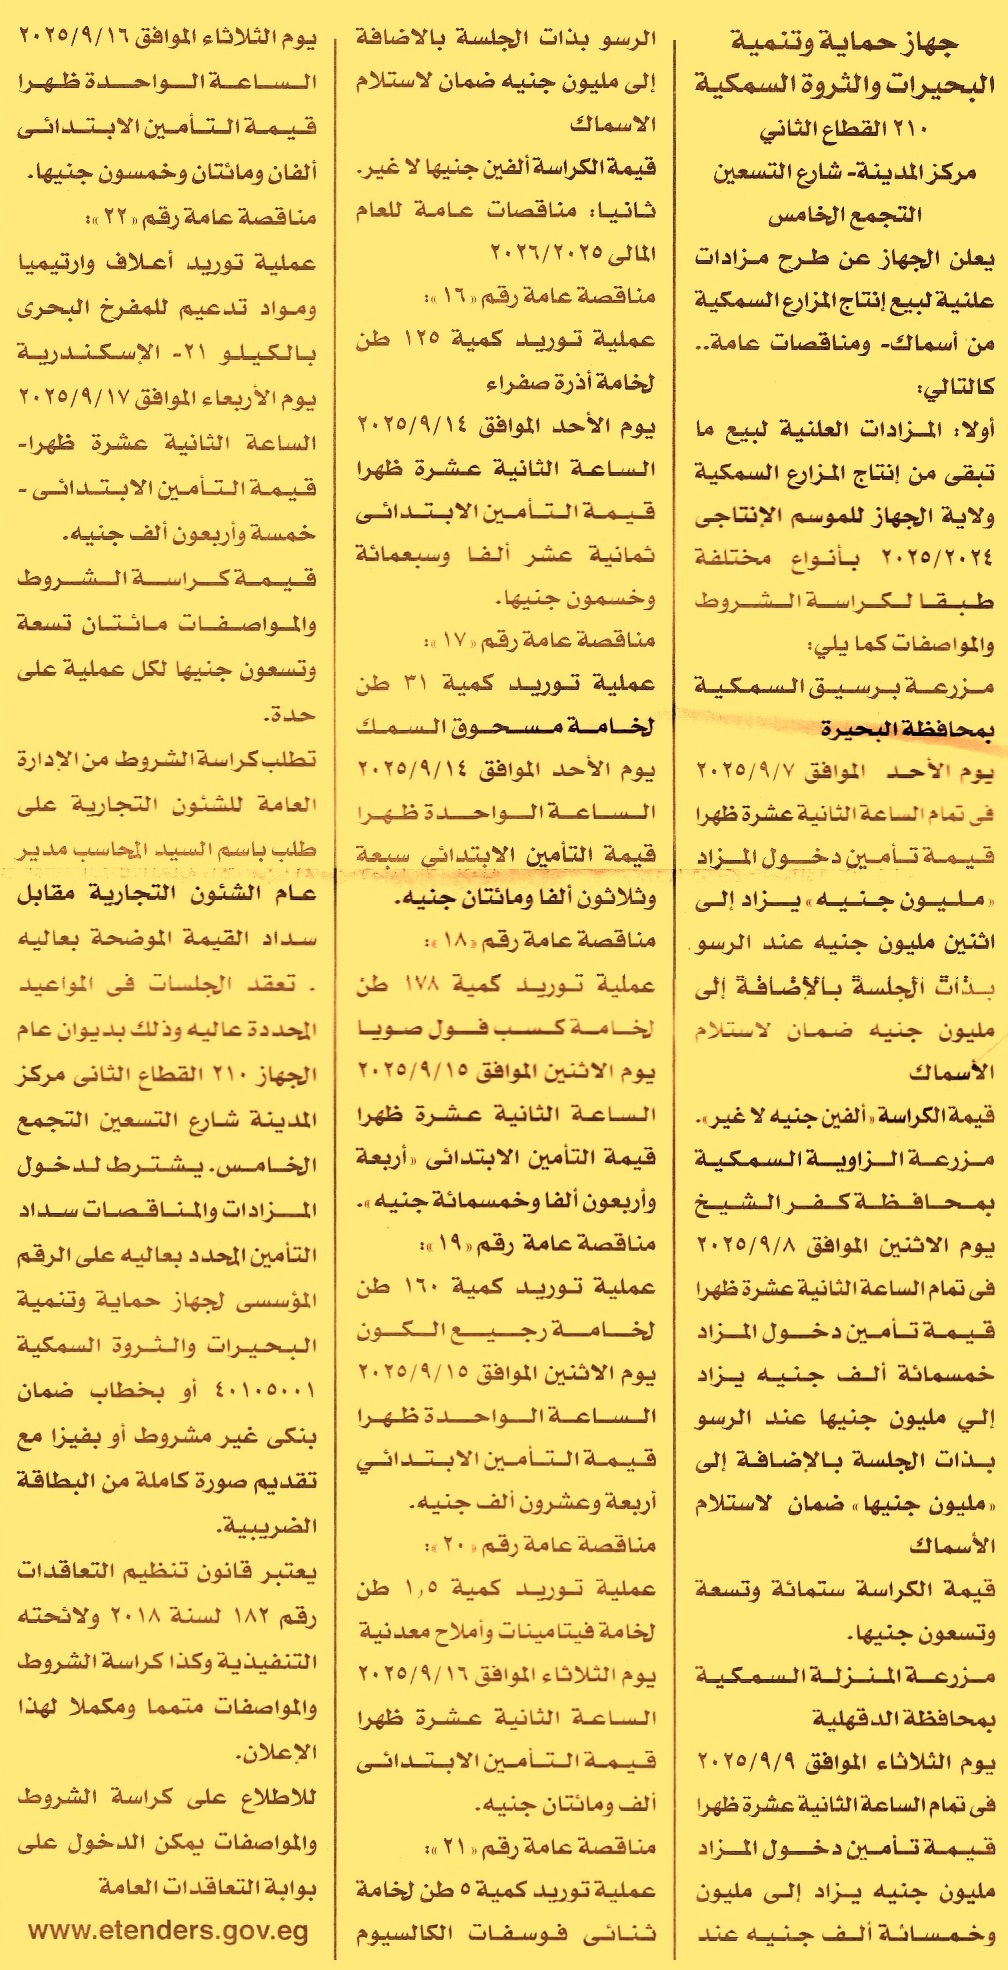 جهاز حماية وتنمية
البحيرات والثروة السمكية
٢١٠ القطاع الثاني
مركز المدينة- شارع التسعين
التجمع الخامس
يعلن الجهاز عن طرح مزادات
علنية لبيع إنتاج المزارع السمكية
من أسماك- ومناقصات عامة..
كالتالي:
أولا: المزادات العلنية لبيع ما
تبقى من إنتاج المزارع السمكية
ولاية الجهاز للموسم الإنتاجى
٢٠٢٥/٢٠٢٤ بأنواع مختلفة
طبقا لكراسة الشروط
والمواصفات كما يلي:
مزرعة برسيق السمكية
بمحافظة البحيرة
يوم الأحد الموافق ٢٠٢٥/٩/٧
فى تمام الساعة الثانية عشرة ظهرا
قيمة تأمين دخول المزاد
«مليون جنيه» يزاد إلى
اثنين مليون جنيه عند الرسو
بذات الجلسة بالإضافة إلى
مليون جنيه ضمان لاستلام
الأسماك
قيمة الكراسة «ألفين جنيه لا غير».
مزرعة الزاوية السمكية
بمحافظة كفر الشيخ
يوم الاثنين الموافق ٢٠٢٥/٩/٨
فى تمام الساعة الثانية عشرة ظهرا
قيمة تأمين دخول المزاد
خمسمائة ألف جنيه يزاد
إلي مليون جنيها عند الرسو
بذات الجلسة بالإضافة إلى
«مليون جنيها» ضمان لاستلام
الأسماك
قيمة الكراسة ستمائة وتسعة
وتسعون جنيها.
مزرعة المنزلة السمكية
بمحافظة الدقهلية
يوم الثلاثاء الموافق ٢٠٢٥/٩/٩
فى تمام الساعة الثانية عشرة ظهرا
قيمة تأمين دخول المزاد
مليون جنيه يزاد إلى مليون
وخمسائة ألف جنيه عند
الرسو بذات الجلسة بالاضافة
إلى مليون جنيه ضمان لاستلام
الاسماك
قيمة الكراسة ألفين جنيها لا غير.
ثانيا: مناقصات عامة للعام
المالى ٢٠٢٦/٢٠٢٥
مناقصة عامة رقم «١٦»:
عملية توريد كمية ١٢٥ طن
لخامة أذرة صفراء
يوم الأحد الموافق ٢٠٢٥/٩/١٤
الساعة الثانية عشرة ظهرا
قيمة التأمين الابتدائى
ثمانية عشر ألفا وسبعمائة
وخسمون جنيها.
مناقصة عامة رقم «١٧»:
عملية توريد كمية ٣١ طن
لخامة مسحوق السمك
يوم الأحد الموافق ٢٠٢٥/٩/١٤
الساعة الواحدة ظهرا
قيمة التأمين الابتدائى سبعة
وثلاثون ألفا ومائتان جنيه.
مناقصة عامة رقم «١٨»:
عملية توريد كمية ١٧٨ طن
لخامة كسب فول صويا
يوم الاثنين الموافق ٢٠٢٥/٩/١٥
الساعة الثانية عشرة ظهرا
قيمة التأمين الابتدائى «أربعة
وأربعون ألفا وخمسمائة جنيه».
مناقصة عامة رقم «١٩»:
عملية توريد كمية ١٦٠ طن
لخامة رجيع الكون
يوم الاثنين الموافق ٢٠٢٥/٩/١٥
الساعة الواحدة ظهرا
قيمة التأمين الابتدائي
أربعة وعشرون ألف جنيه.
مناقصة عامة رقم «٢٠»:
عملية توريد كمية ١,٥ طن
لخامة فيتامينات وأملاح معدنية
يوم الثلاثاء الموافق ٢٠٢٥/٩/١٦
الساعة الثانية عشرة ظهرا
قيمة التأمين الابتدائى
ألف ومائتان جنيه.
مناقصة عامة رقم «٢١»:
عملية توريد كمية ٥ طن لخامة
ثنائى فوسفات الكالسيوم
يوم الثلاثاء الموافق ٢٠٢٥/٩/١٦
الساعة الواحدة ظهرا
قيمة التأمين الابتدائى
ألفان ومائتان وخمسون جنيها.
مناقصة عامة رقم «٢٢»:
عملية توريد أعلاف وارتيميا
ومواد تدعيم للمفرخ البحرى
بالكيلو ٢١- الإسكندرية
يوم الأربعاء الموافق ٢٠٢٥/٩/١٧
الساعة الثانية عشرة ظهرا-
قيمة التأمين الابتدائى -
خمسة وأربعون ألف جنيه.
قيمة كراسة الشروط
والمواصفات مائتان تسعة
وتسعون جنيها لكل عملية على
حدة.
تطلب كراسة الشروط من الإدارة
العامة للشئون التجارية على
طلب باسم السيد المحاسب مدير
عام الشئون التجارية مقابل
سداد القيمة الموضحة بعاليه
. تعقد الجلسات فى المواعيد
المحددة عاليه وذلك بديوان عام
الجهاز ٢١٠ القطاع الثانى مركز
المدينة شارع التسعين التجمع
الخامس. يشترط لدخول
المزادات والمناقصات سداد
التأمين المحدد بعاليه على الرقم
المؤسسى لجهاز حماية وتنمية
البحيرات والثروة السمكية
٤٠١٠٥٠٠١ أو بخطاب ضمان
بنكى غير مشروط أو بفيزا مع
تقديم صورة كاملة من البطاقة
الضريبية.
يعتبر قانون تنظيم التعاقدات
رقم ١٨٢ لسنة ٢٠١٨ ولائحته
التنفيذية وكذا كراسة الشروط
والمواصفات متمما ومكملا لهذا
الإعلان.
للاطلاع على كراسة الشروط
والمواصفات يمكن الدخول على
بوابة التعاقدات العامة
www.etenders.gov.eg